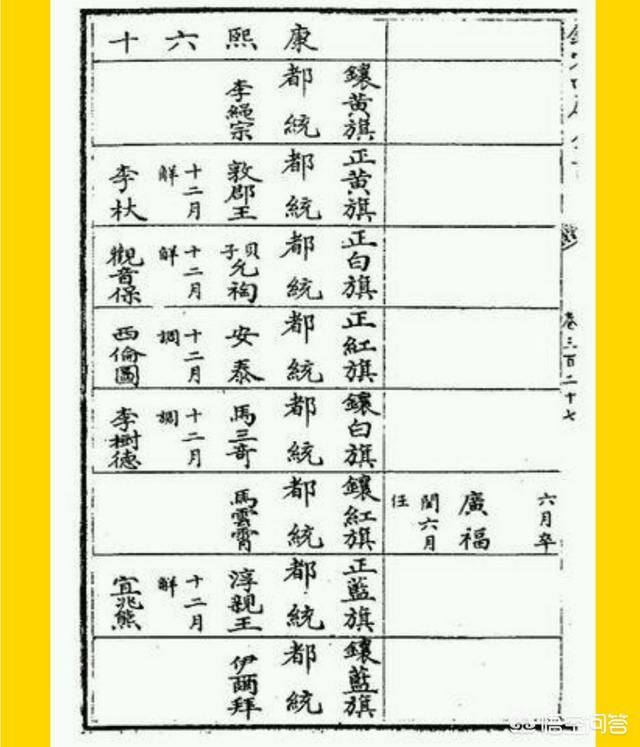 卷三百二十七
六月卒
廣福
閏六月
任
康熙六十
鑲黃旗
都統
李繩宗
正黃旗
都統
敦郡王
十二月
解
李杕
正白旗
都統
貝子允祹
十二月
解
觀音保
正紅旗
都統
安泰
十二月
調
西倫圖
鑲白旗
都統
馬三奇
十二月
調
李樹德
鑲紅旗
都統
馬雲霄
正藍旗
都統
淳親王
十二月
解
宜兆熊
鑲藍旗
都統
伊爾拜
悟空问答